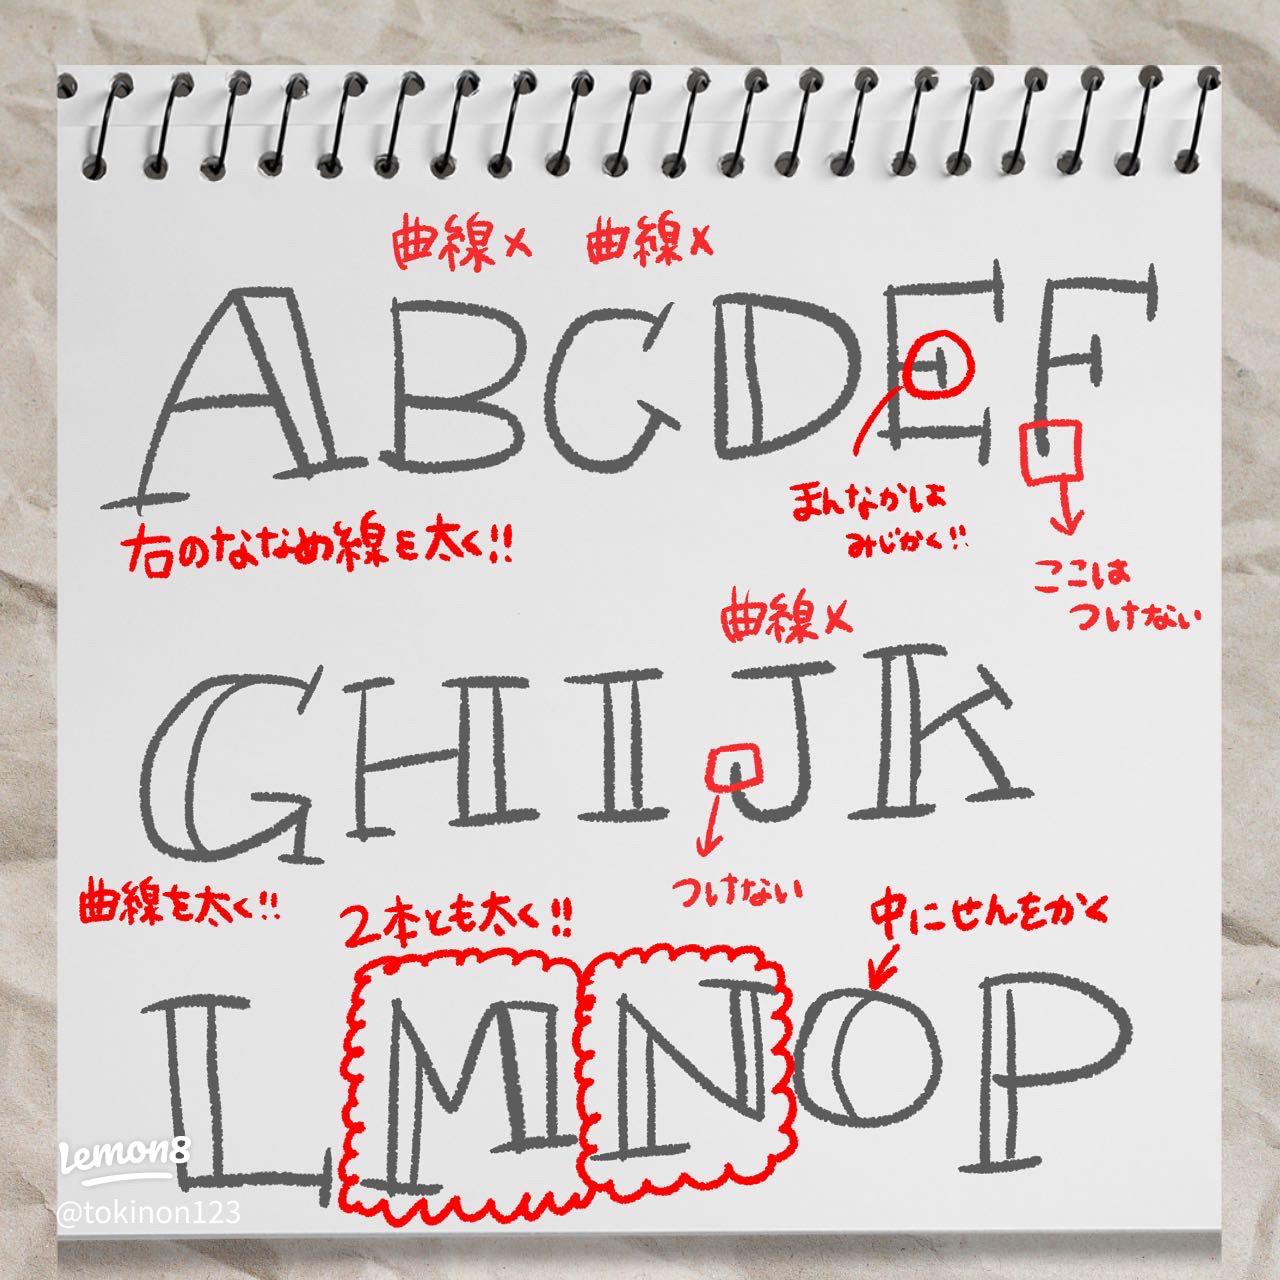 曲線× 曲線×
ABCDEF
右のななめ線を太く!!
まんなかは
みじかく!!
ここは
つけない
曲線×
GHIJK
つけない
曲線を太く!!
2本とも太く!!
中にせんをかく
LMNOP
Lemon8
@tokinon123